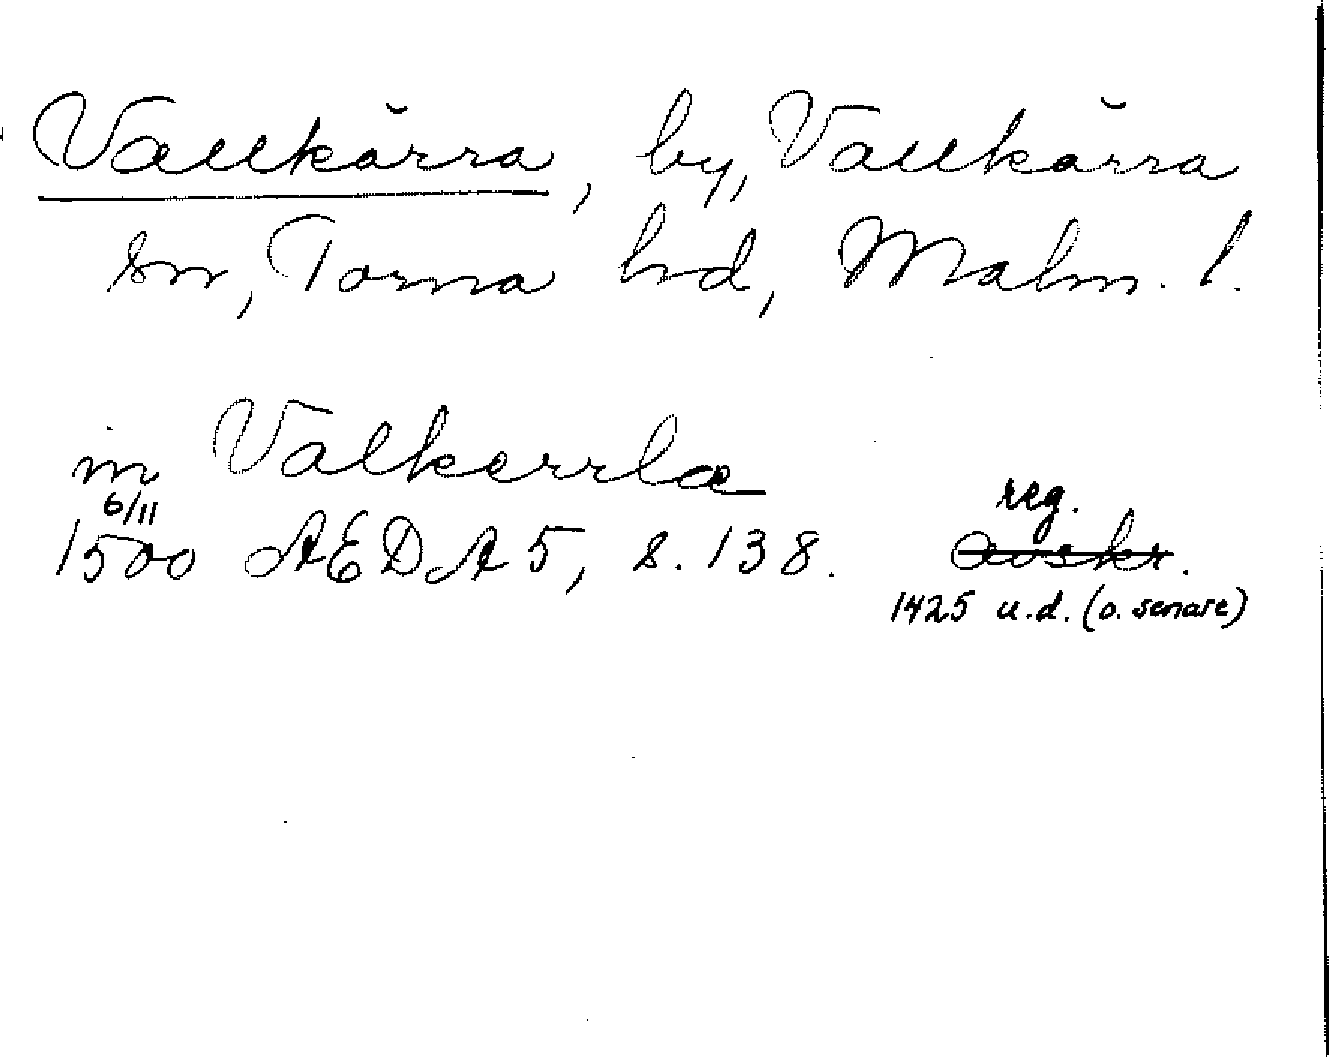 Vallkärra, by, Vallkärra
sn, Torna hd, Malm. l.
in Valkerrlæ
6/11
1500 AEDA 5, s. 138.
reg.
avskr.
1425 u.d. (o. senare)